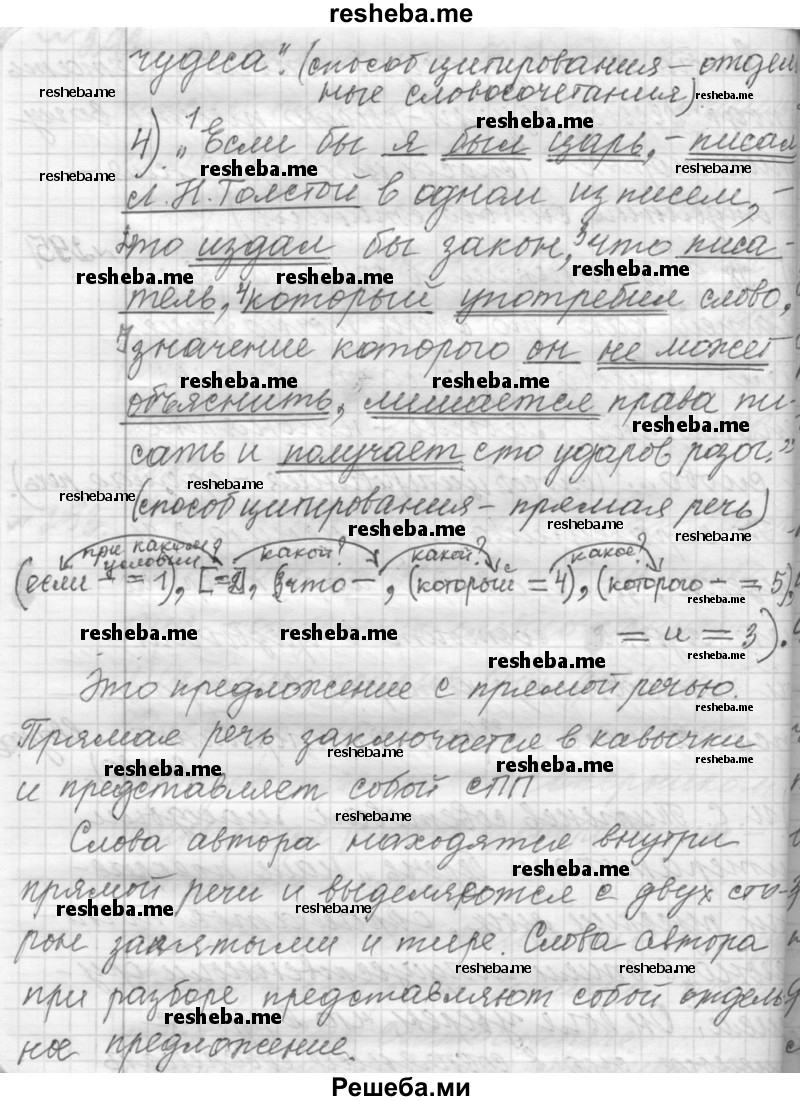 resheba.me
чудеса". (способ цитирования – отдель
ные словосочетания).
4). „¹Если бы я был царь, – писал
Л. Н. Толстой в одном из писем, –
²то издал бы закон, ³что писа-
тель, ⁴который употребил слово,
⁵значение которого он не может
объяснить, лишается права пи-
сать и получает сто ударов розог."
(способ цитирования – прямая речь)
при каком? условии какой? какой? какое?
(если – = 1), [= 2], (что –, (который = 4), (которого – = 5),
= и = 3).
Это предложение с прямой речью.
Прямая речь заключается в кавычки
и представляет собой СПП
Слова автора находятся внутри
прямой речи и выделяются с двух сто-
рон запятыми и тире. Слова автора
при разборе представляют собой отдель
ное предложение.
Решеба.ми